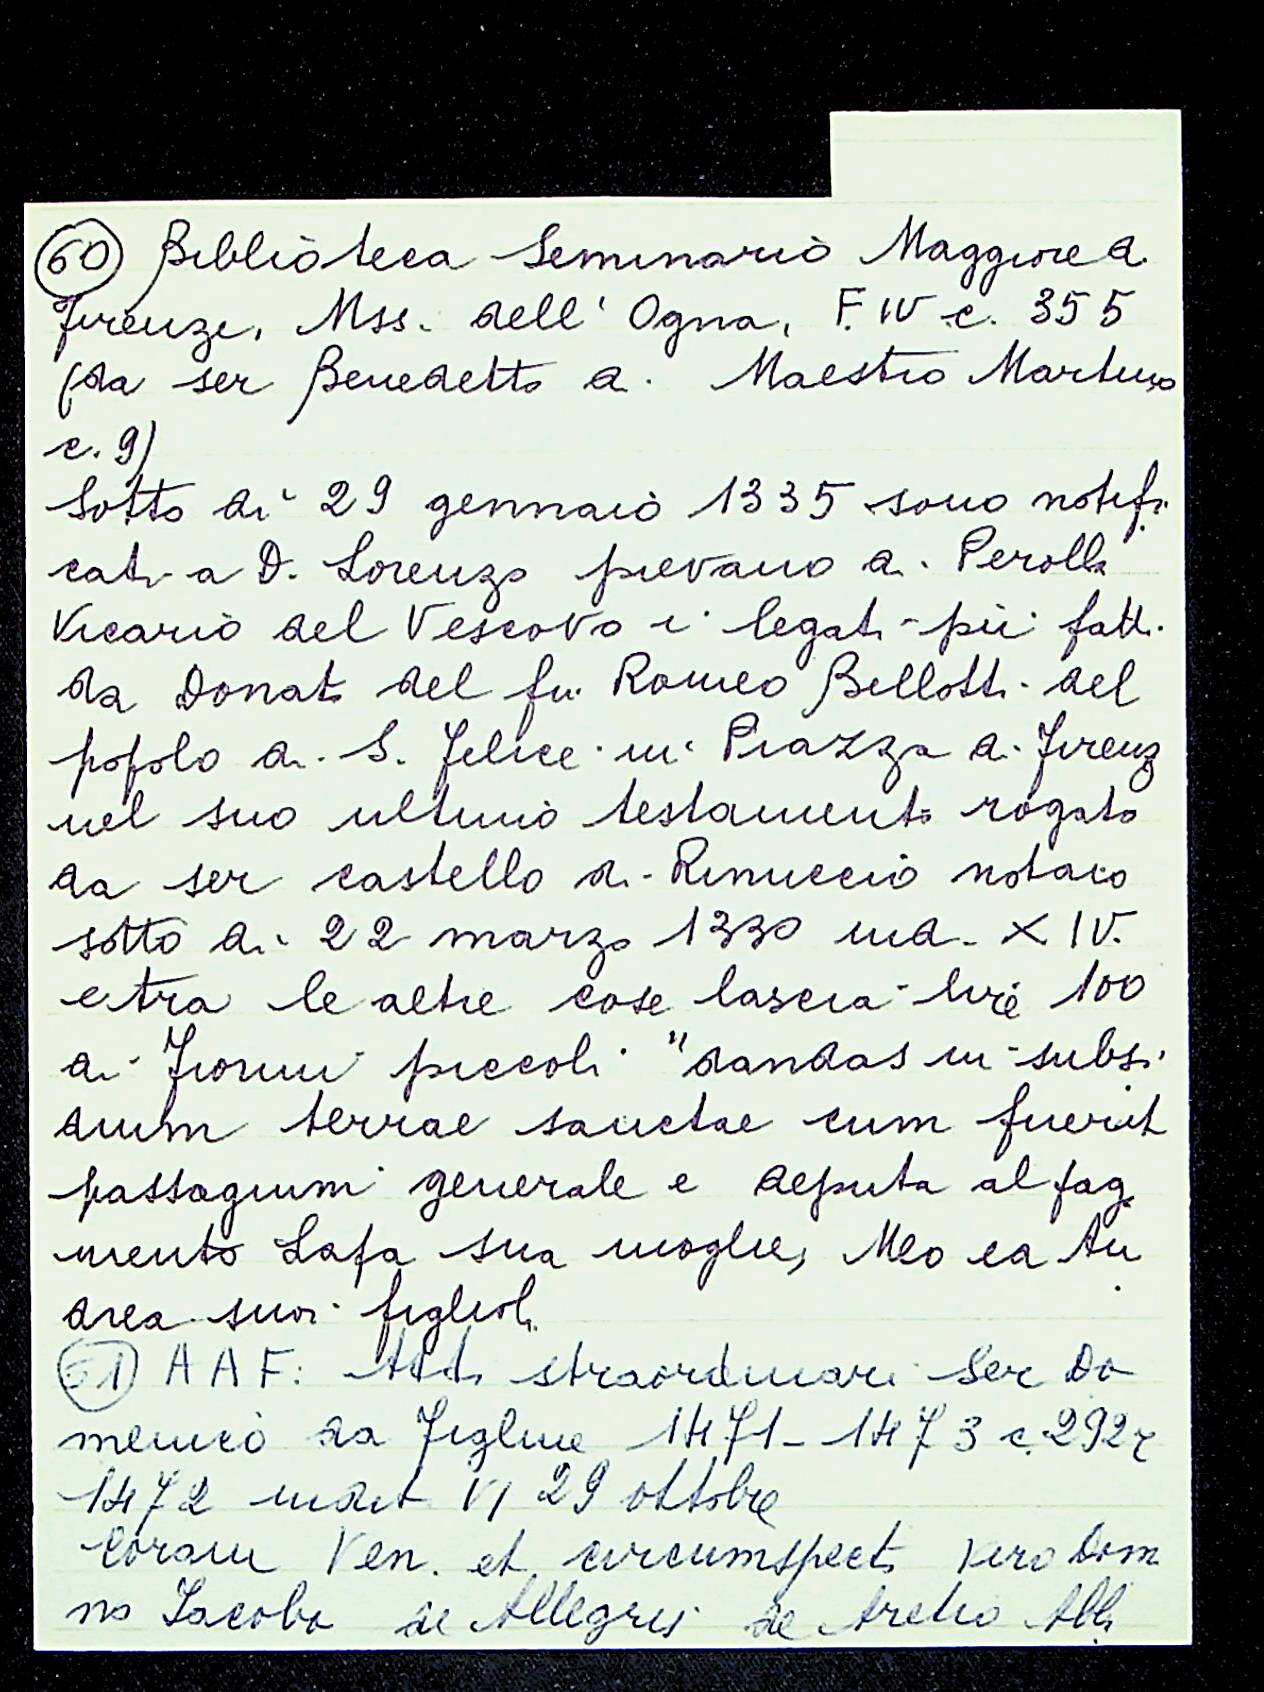 60 Biblioteca Seminario Maggiore di
Firenze, Mss. dell'Ogna, F. IV c. 355
(da ser Benedetto di Maestro Martino
c. 9)
Sotto di 29 gennaio 1335 sono notifi
cati a D. Lorenzo pievano di Perolla
Vicario del Vescovo i legati pii fatti
da Donato del fu Romeo Bellotti del
popolo di S. Felice in Piazza di Firenze
nel suo ultimo testamento rogato
da ser Castello di Rinuccio notaio
sotto di 22 marzo 1330 ind. XIV.
e tra le altre cose lascia lire 100
di Fiorini piccoli "dandas in subsi
dium terrae sanctae cum fuerit
passagium generale e deputa al pag
mento Lapa sua moglie, Meo ed An
drea suoi figlioli
61) AAF: Atti straordinari Ser Do
menico da Figline 1471-1473 c. 292r
1472 indict VI 29 ottobre
Coram Ven. et circumspecto viro Dom
no Iacobo de Allegris de Aretio Abb